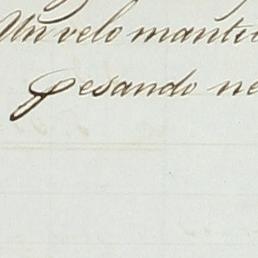 Un velo mantu
pesando ne